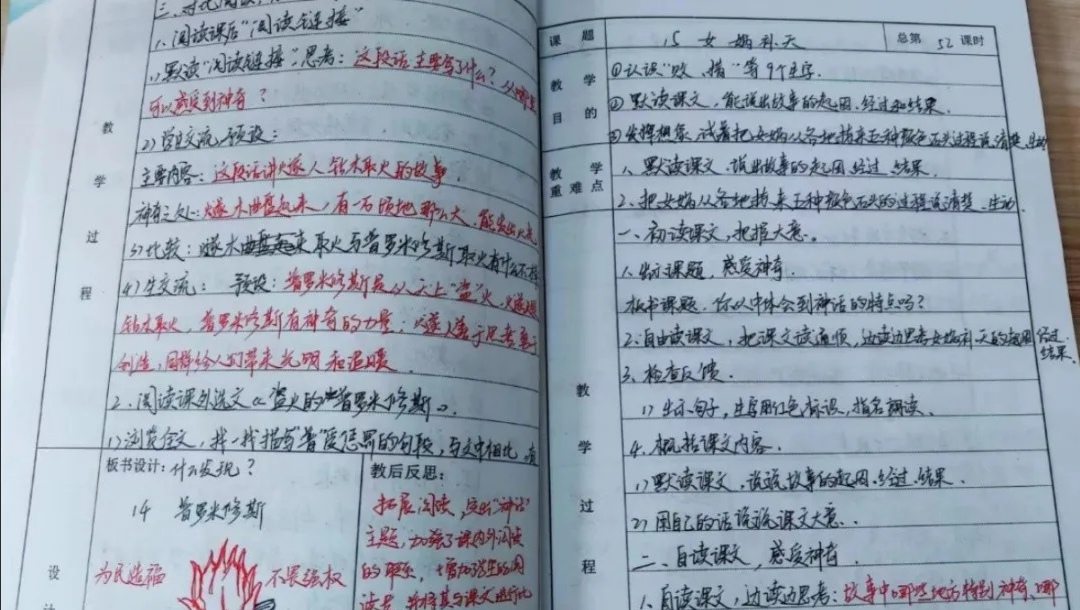 三、对比阅读,
1、阅读课后“阅读链接”
1)默读“阅读链接”,思考:这段话主要写了什么?从哪里
可以感受到神奇?
2)学生交流,预设:
主要内容:这段话讲燧人钻木取火的故事。
神奇之处:燧木曲盘起来,有一万顷地那么大,能发出火光
3)比较:燧木曲盘起来取火与普罗米修斯取火有什么不同
4)生交流: 预设:普罗米修斯是从天上“盗”火,燧人是
钻木取火,普罗米修斯有神奇的力量,燧人善于思考勇于
创造,同样给人们带来光明和温暖。
2、阅读课外选文《盗火的普罗米修斯》。
1)浏览全文,找一找描写普
的句段,与文中相比,有
板书设计:什么发现?
14 普罗米修斯
为民造福 不畏强权
教后反思:
拓展阅读,突出“神话”
主题,加强了课内外阅读
的联系,增加学生的阅
读量,
教学过程
设计
课题 15 女娲补天 总第 52 课时
教学目的
①认识“败、措”等9个生字。
②默读课文,能说出故事的起因、经过和结果。
③发挥想象,试着把女娲从各地拣来五种颜色石头过程说清楚、生动
教学重难点
1、默读课文,说出故事的起因、经过、结果。
2、把女娲从各地拣来五种颜色石头的过程说清楚、生动。
教学过程
一、初读课文,把握大意。
1、出示课题,感受神奇。
板书课题,你从中体会到神话的特点吗?
2、自由读课文,把课文读通顺,边读边思考女娲补天的起因、经过、
结果。
3、检查反馈。
1)出示句子,生字用红色标识,指名朗读。
4、概括课文内容。
1)默读课文,说说故事的起因、经过、结果。
2)用自己的话说说课文大意。
二、自读课文,感受神奇。
1、自读课文,边读边思考:故事中哪些地方特别神奇、哪